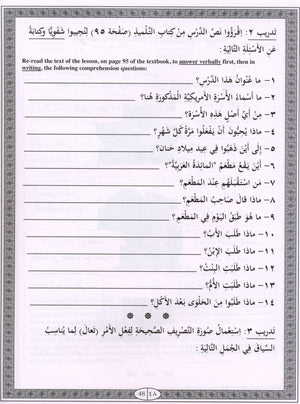 تدريب ٢: اِقْرَؤُوا نَصَّ الدَّرْسِ مِنْ كِتابِ التِّلْميذِ (صَفْحَة ٩٥) لِتُجيبوا شَفَوِيًّا وَكِتابَةً
عَنِ الأَسْئِلَةِ التَّالِيَةِ:
Re-read the text of the lesson, on page 95 of the textbook, to answer verbally first, then in
writing, the following comprehension questions:
١- ما عُنْوانُ هَذا الدَّرْسِ؟
٢- ما أَسْماءُ الأُسْرَةِ الأَمْريكِيَّةِ الْمَذْكورَةِ هُنا؟
٣- مِنْ أَيِّ أَصْلٍ هَذِهِ الأُسْرَة؟
٤- ماذا يُحِبُّونَ أَنْ يَفْعَلُوا مَرَّةً كُلَّ شَهْرٍ؟
٥- إِلَى أَيْنَ ذَهَبُوا في عيدِ ميلادِ حَنان؟
٦- أَيْنَ يَقَعُ مَطْعَمُ "المائِدَةُ العَرَبِيَّةُ"؟
٧- مَنِ اسْتَقْبَلَهُم عِنْدَ المَطْعَمِ؟
٨- ماذا قالَ صاحِبُ المَطْعَمِ؟
٩- ما هُوَ طَبَقُ اليَوْمِ في المَطْعَمِ؟
١٠- ماذا طَلَبَ الأَبُ؟
١١- ماذا طَلَبَ الاِبْنُ؟
١٢- ماذا طَلَبَتِ البِنْتُ؟
١٣- ماذا طَلَبَتِ الأُمُّ؟
١٤- ماذا طَلَبُوا مِنَ الحَلْوَى بَعْدَ الأَكْلِ؟
* * *
تدريب ٣: اِسْتِعْمالُ صُورَةِ التَّصْريفِ الصَّحيحَةِ لِفِعْلِ الأَمْرِ (تَعالَ) لِما يُناسِبُ
السِّياقَ في الجُمَلِ التَّالِيَةِ:
48 IA